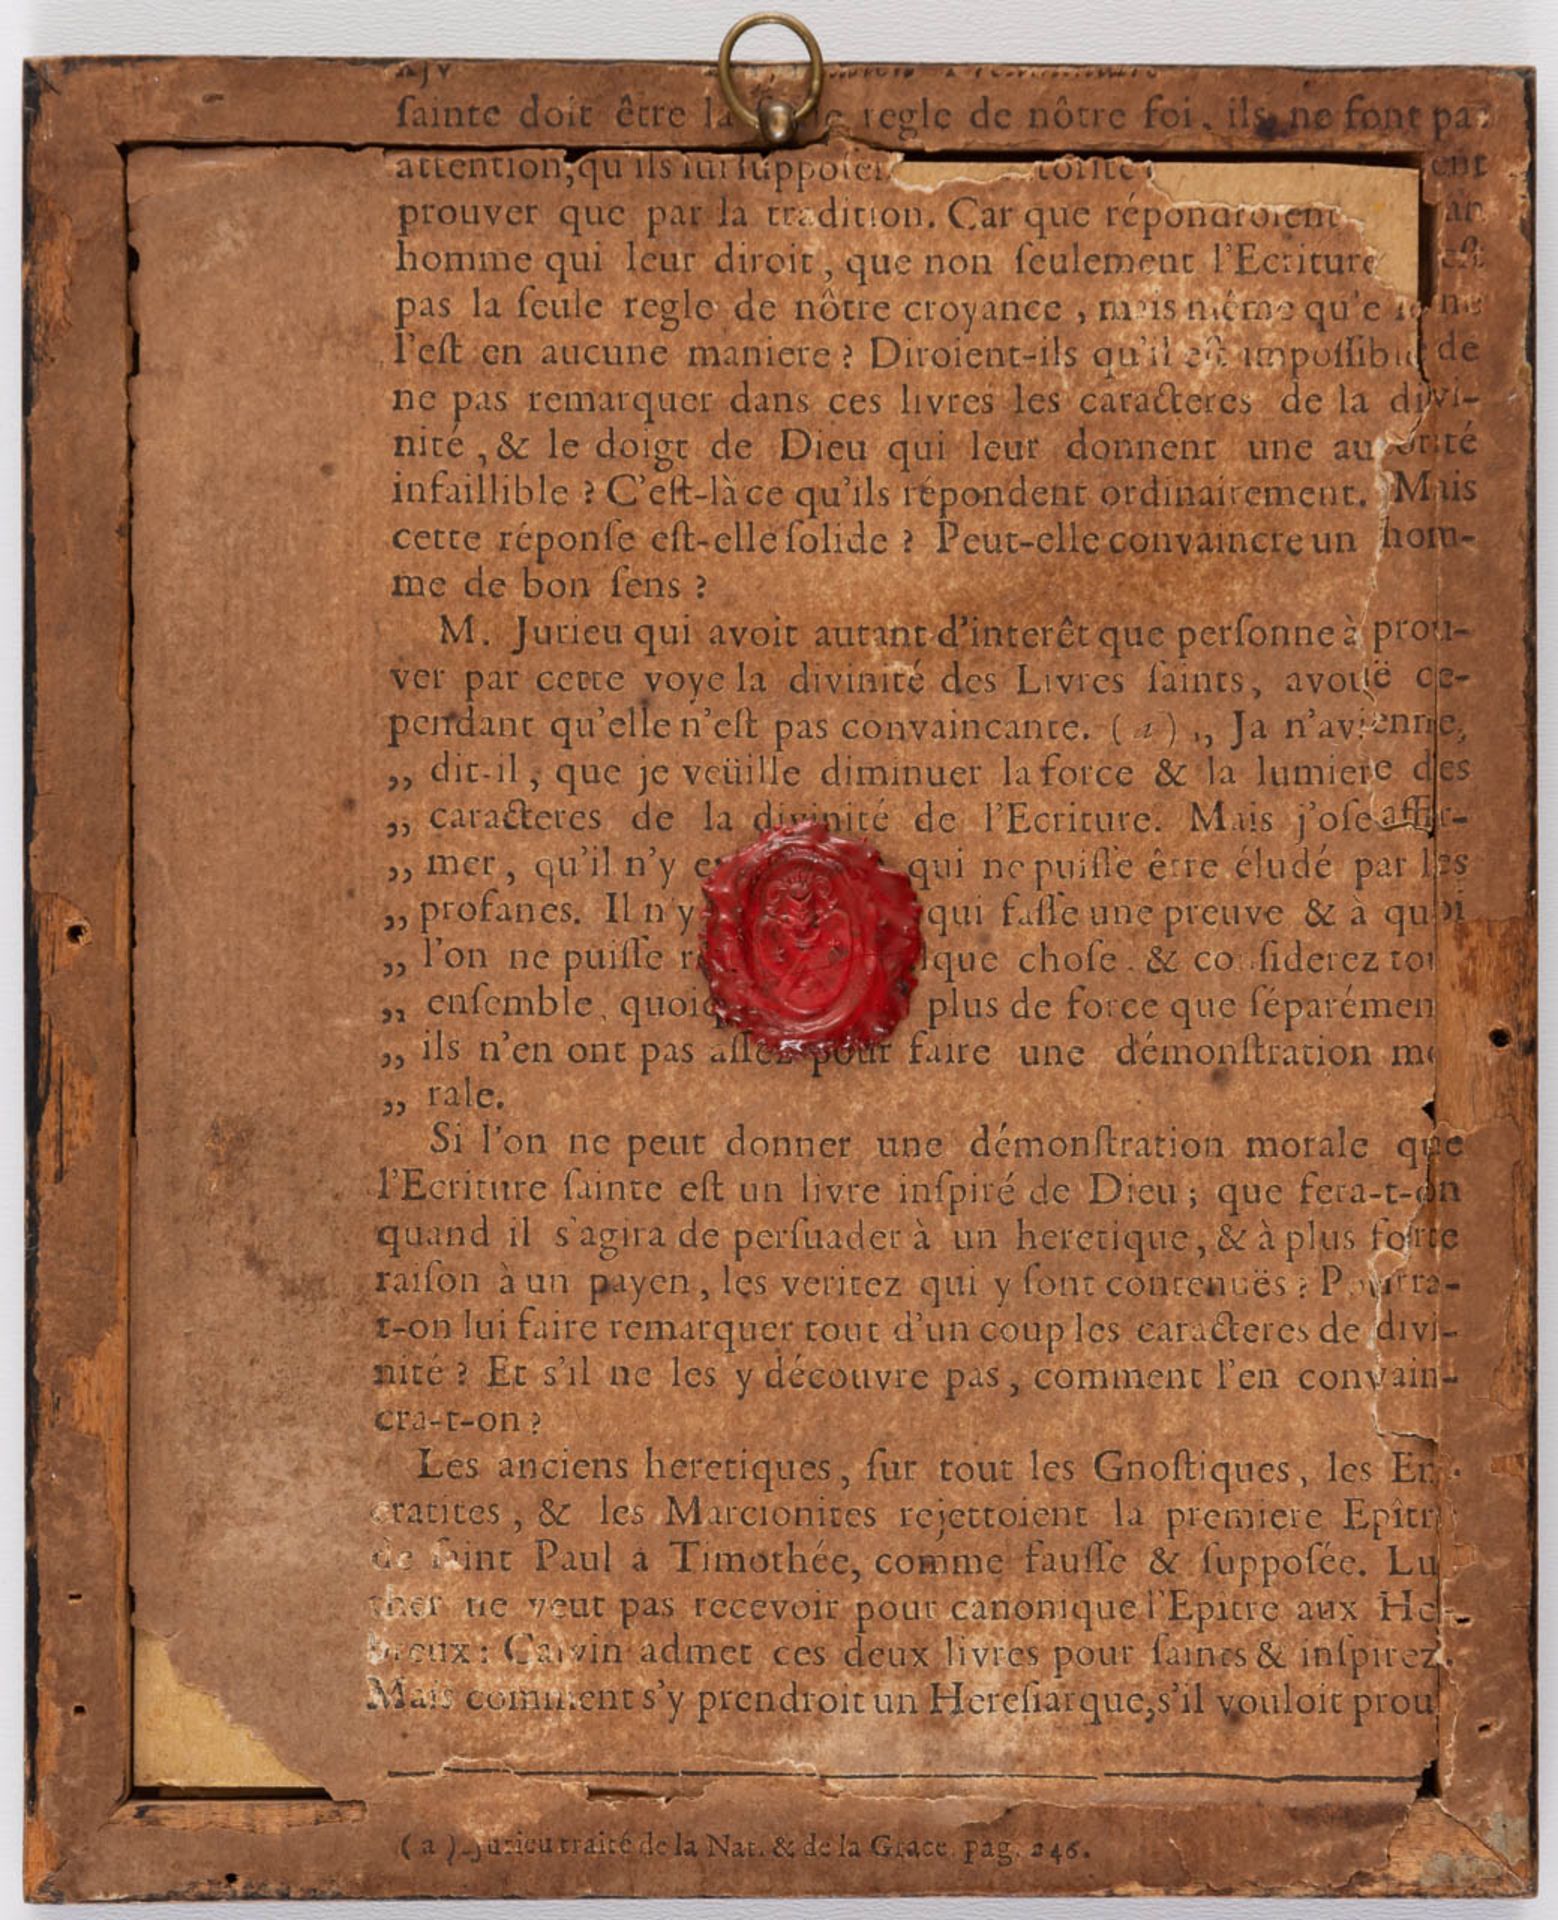 sainte doit être la regle de nôtre foi, ils ne font pas
attention, qu'ils lui
prouver que par la tradition. Car que répondroient
homme qui leur diroit, que non seulement l'Ecriture
pas la seule regle de nôtre croyance, mais même qu'e ne
l'est en aucune maniere? Diroient-ils qu'il est impossible de
ne pas remarquer dans ces livres les caracteres de la divi-
nité, & le doigt de Dieu qui leur donnent une autorité
infaillible? C'est-là ce qu'ils répondent ordinairement. Mais
cette réponse est-elle solide? Peut-elle convaincre un hom-
me de bon sens?
M. Jurieu qui avoit autant d'interêt que personne à prou-
ver par cette voye la divinité des Livres saints, avouë ce-
pendant qu'elle n'est pas convaincante. (a) ,, Ja n'avienne,
,, dit-il, que je veüille diminuer la force & la lumiere des
,, caracteres de la divinité de l'Ecriture. Mais j'ose affir-
,, mer, qu'il n'y e qui ne puisse être éludé par les
,, profanes. Il n'y qui fasse une preuve & à quoi
,, l'on ne puisse r lque chose. & considerez tou
,, ensemble, quoiq plus de force que séparémen
,, ils n'en ont pas assez pour faire une démonstration mo
,, rale.
Si l'on ne peut donner une démonstration morale que
l'Ecriture sainte est un livre inspiré de Dieu; que fera-t-on
quand il s'agira de persuader à un heretique, & à plus forte
raison à un payen, les veritez qui y sont contenuës? Pourra-
t-on lui faire remarquer tout d'un coup les caracteres de divi-
nité? Et s'il ne les y découvre pas, comment l'en convain-
cra-t-on?
Les anciens heretiques, sur tout les Gnostiques, les En-
cratites, & les Marcionites rejettoient la premiere Epître
de saint Paul à Timothée, comme fausse & supposée. Lu
ther ne veut pas recevoir pour canonique l'Epitre aux He-
breux: Calvin admet ces deux livres pour saints & inspirez.
Mais comment s'y prendroit un Heresiarque, s'il vouloit prou
(a) Jurieu traité de la Nat. & de la Grace. pag. 246.